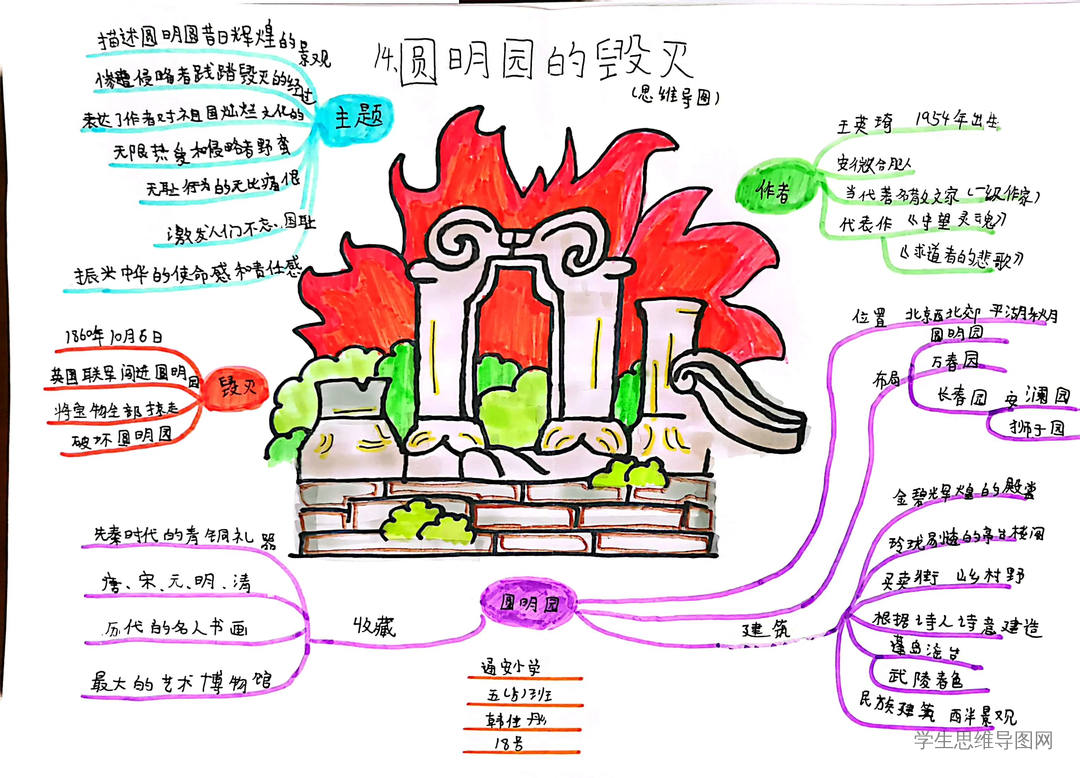 14.圆明园的毁灭
(思维导图)
主题
描述圆明园昔日辉煌的景观
惨遭侵略者践踏毁灭的经过
表达了作者对祖国灿烂文化的
无限热爱和侵略者野蛮
无耻行为的无比痛恨
激发人们不忘国耻
振兴中华的使命感和责任感
作者
王英琦 1954年出生
安徽合肥人
当代著名散文家(一级作家)
代表作《守望灵魂》
《求道者的悲歌》
毁灭
1860年10月6日
英国联军闯进圆明园
将宝物全部掠走
破坏圆明园
圆明园
位置 北京西北郊 平湖秋月
布局
圆明园
万春园
长春园 安澜园
狮子园
建筑
金碧辉煌的殿堂
玲珑剔透的亭台楼阁
买卖街 山乡村野
根据诗人诗意建造
蓬岛瑶台
武陵春色
民族建筑 西半景观
收藏
先秦时代的青铜礼器
唐、宋、元、明、清
历代的名人书画
最大的艺术博物馆
通安小学
韩佳彤
18号
学生思维导图网